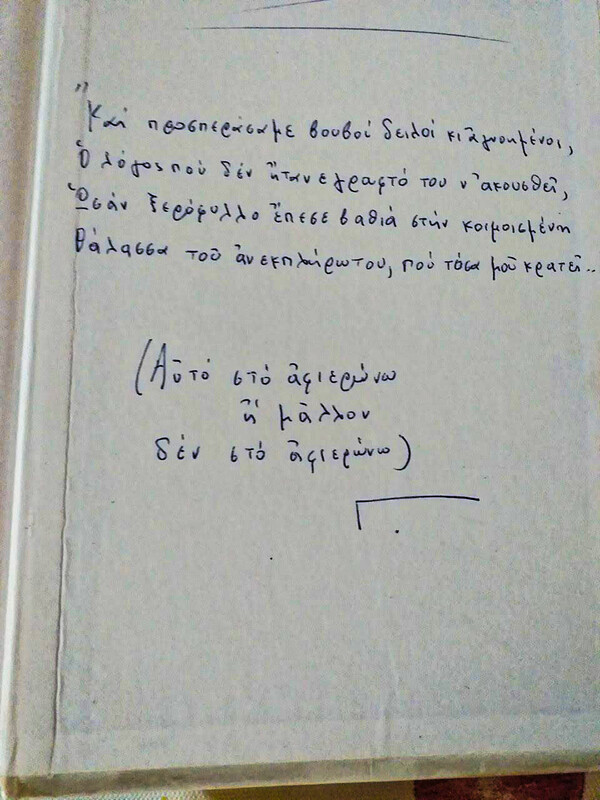 "Καὶ προσπεράσαμε βουβοί δειλοί κι ἀγνοημένοι,
Ὁ λόγος πού δέν ἤταν εγραφτό του ν' ακουσθεῖ,
Ὡσάν ξερόφυλλο ἔπεσε βαθιά στήν κοιμοισμένη
θάλασσα τοῦ ἀνεκπλήρωτου, πού τόσα μοῦ κρατεῖ..
(Αὐτό στό ἀφιερώνω
ἤ μᾶλλον
δέν στό ἀφιερώνω)
Γ.